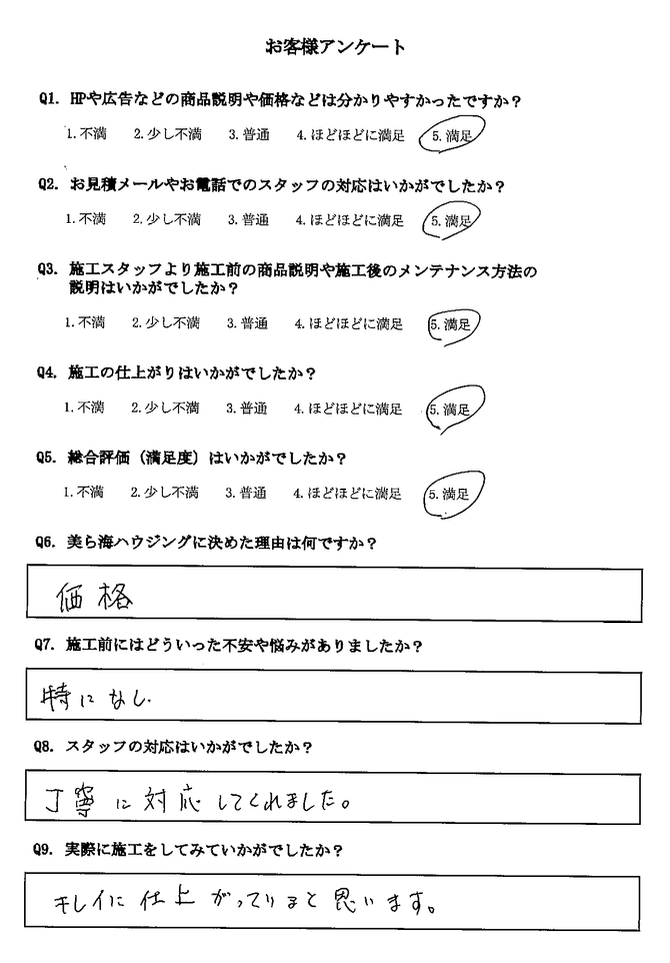 お客様アンケート
Q1. HPや広告などの商品説明や価格などは分かりやすかったですか？
1. 不満 2. 少し不満 3. 普通 4. ほどほどに満足 5. 満足
Q2. お見積メールやお電話でのスタッフの対応はいかがでしたか？
1. 不満 2. 少し不満 3. 普通 4. ほどほどに満足 5. 満足
Q3. 施工スタッフより施工前の商品説明や施工後のメンテナンス方法の
説明はいかがでしたか？
1. 不満 2. 少し不満 3. 普通 4. ほどほどに満足 5. 満足
Q4. 施工の仕上がりはいかがでしたか？
1. 不満 2. 少し不満 3. 普通 4. ほどほどに満足 5. 満足
Q5. 総合評価（満足度）はいかがでしたか？
1. 不満 2. 少し不満 3. 普通 4. ほどほどに満足 5. 満足
Q6. 美ら海ハウジングに決めた理由は何ですか？
価格
Q7. 施工前にはどういった不安や悩みがありましたか？
特になし.
Q8. スタッフの対応はいかがでしたか？
丁寧に対応してくれました。
Q9. 実際に施工をしてみていかがでしたか？
キレイに仕上がっていると思います。